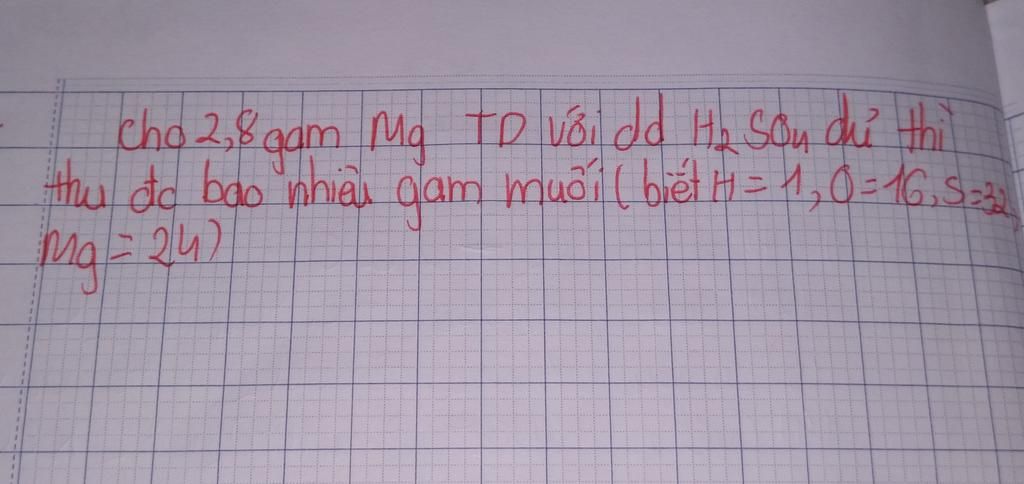 Cho 2,8 gam Mg TD với dd H₂SO₄ dư thì
thu đc bao nhiêu gam muối (biết H = 1, O = 16, S = 32,
Mg = 24)